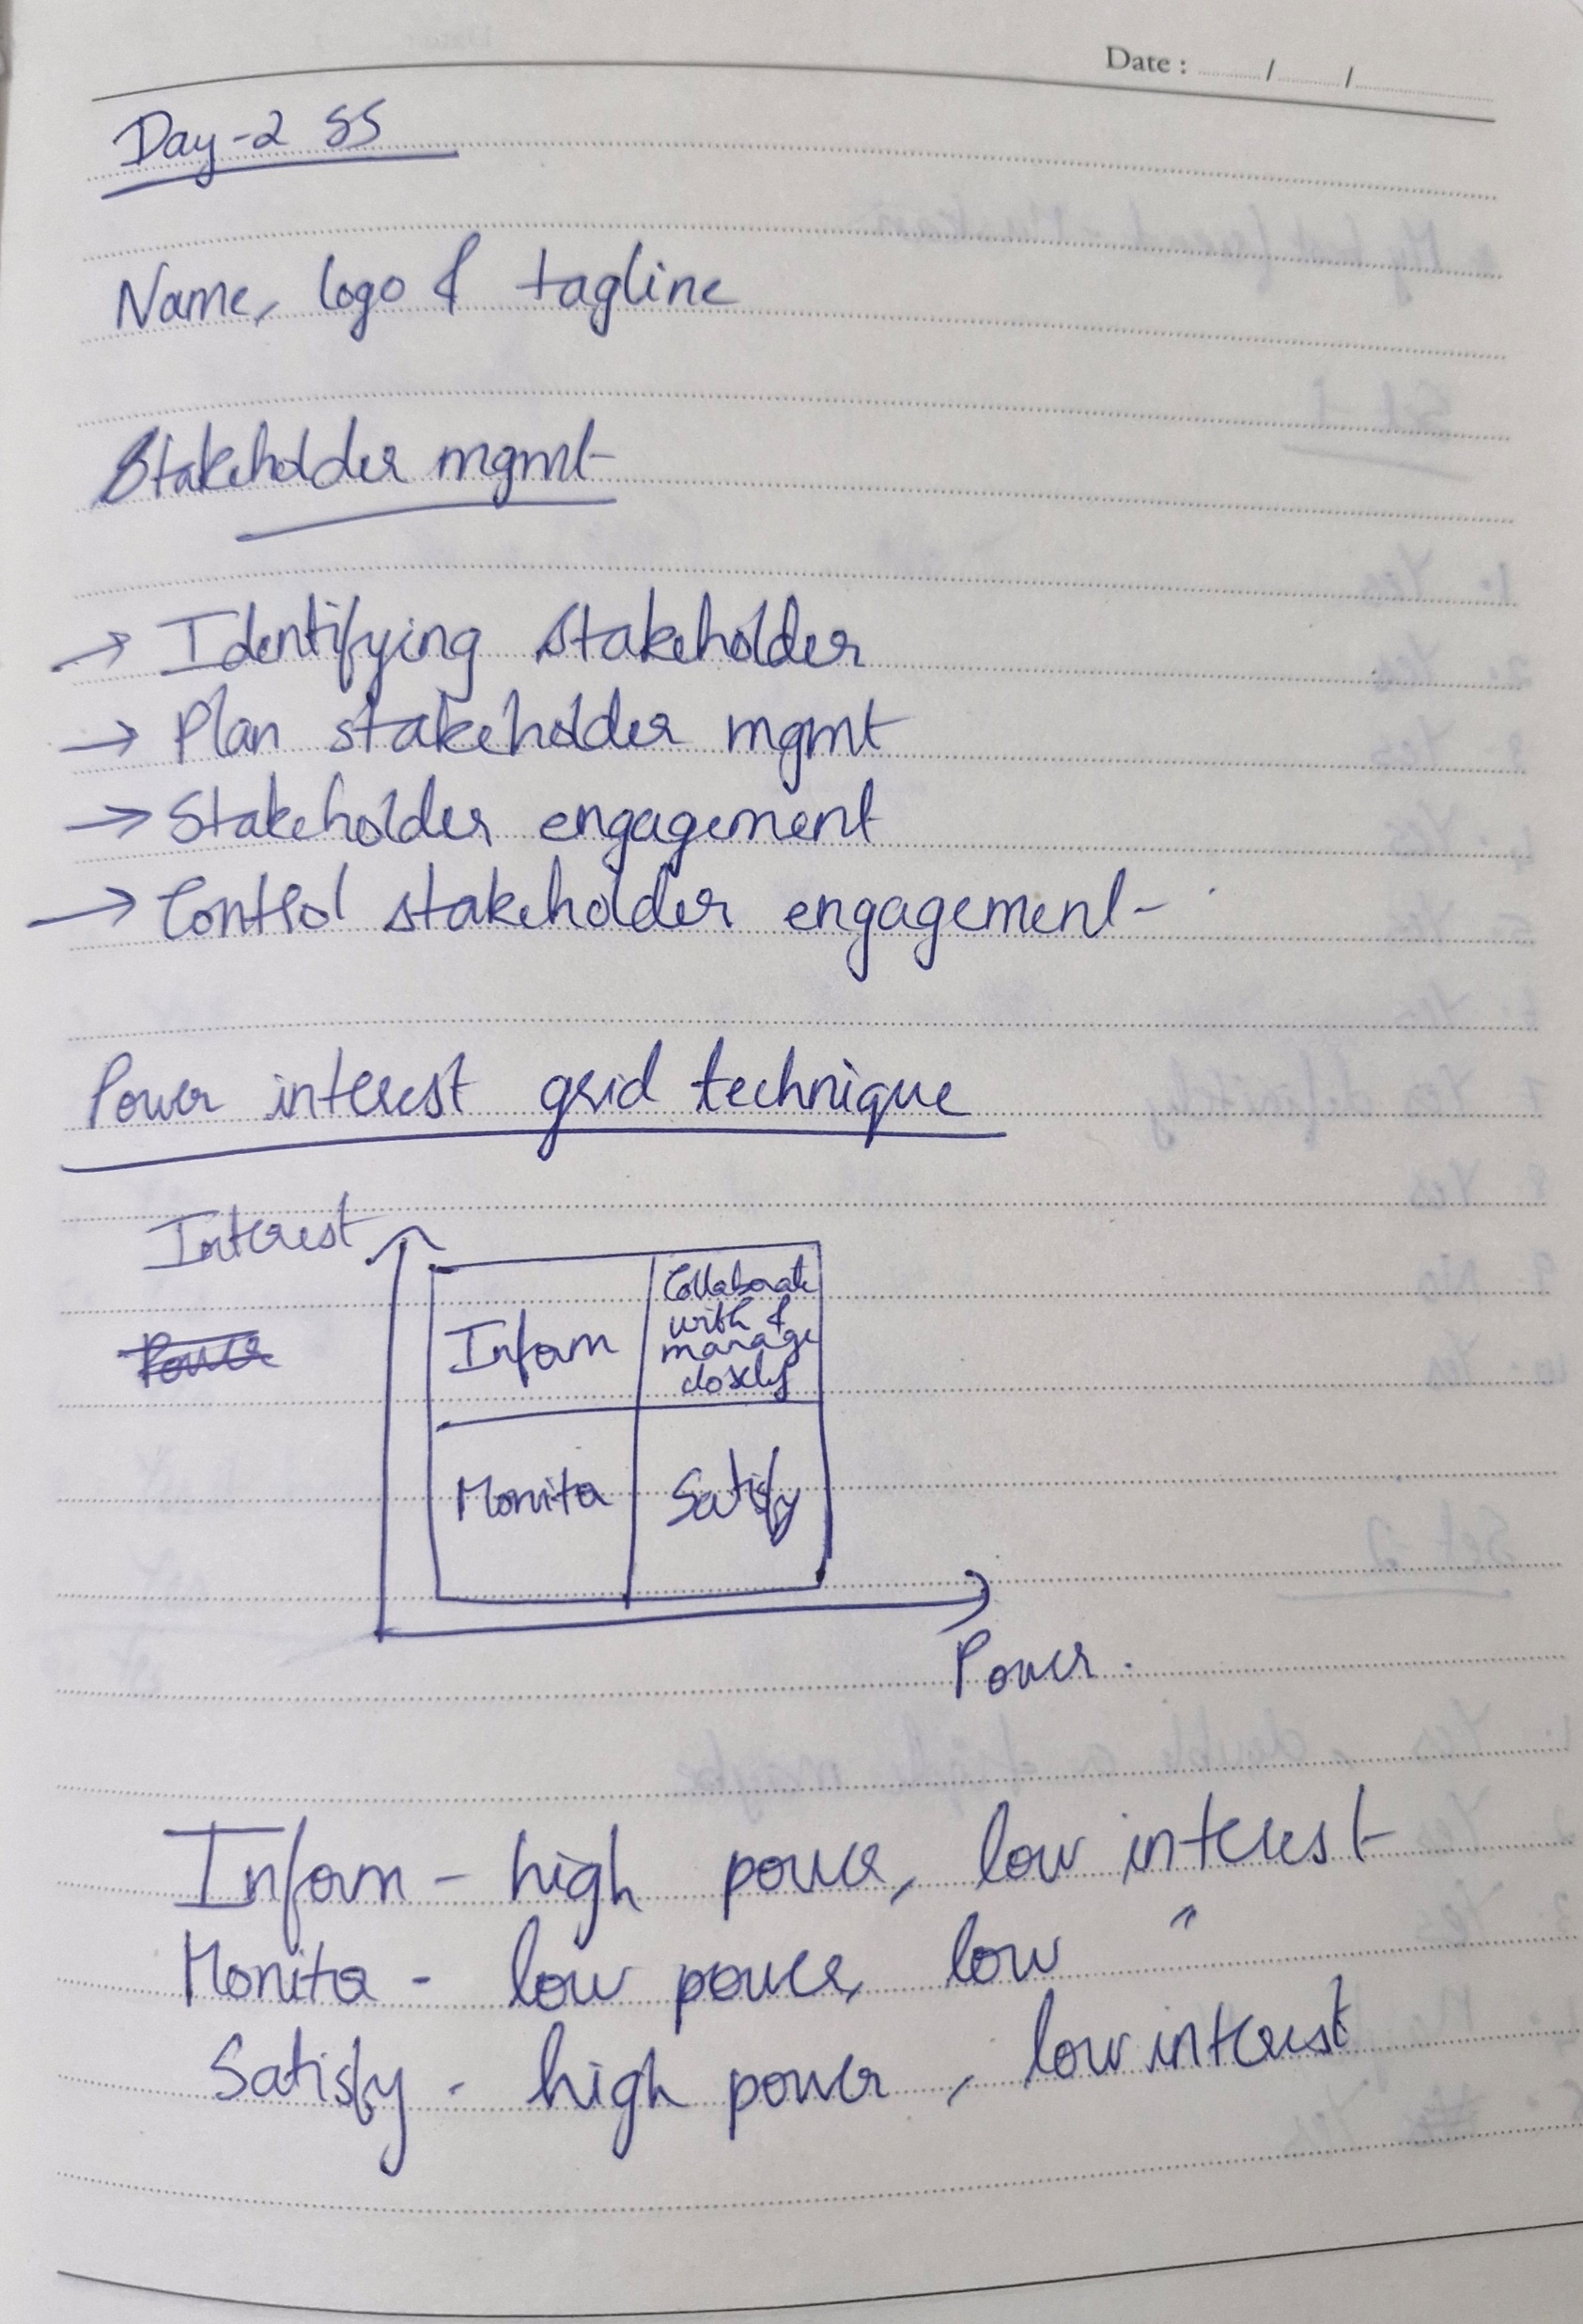 Date : ....... / ....... / .......
Day-2 SS
Name, logo & tagline
Stakeholder mgmt
→ Identifying stakeholder
→ Plan stakeholder mgmt
→ Stakeholder engagement
→ Control stakeholder engagement
Power interest grid technique
Interest
Power
Inform
Collaborate
with &
manage
closely
Monitor
Satisfy
Power.
Inform - high power, low interest
Monitor - low power, low "
Satisfy - high power, low interest